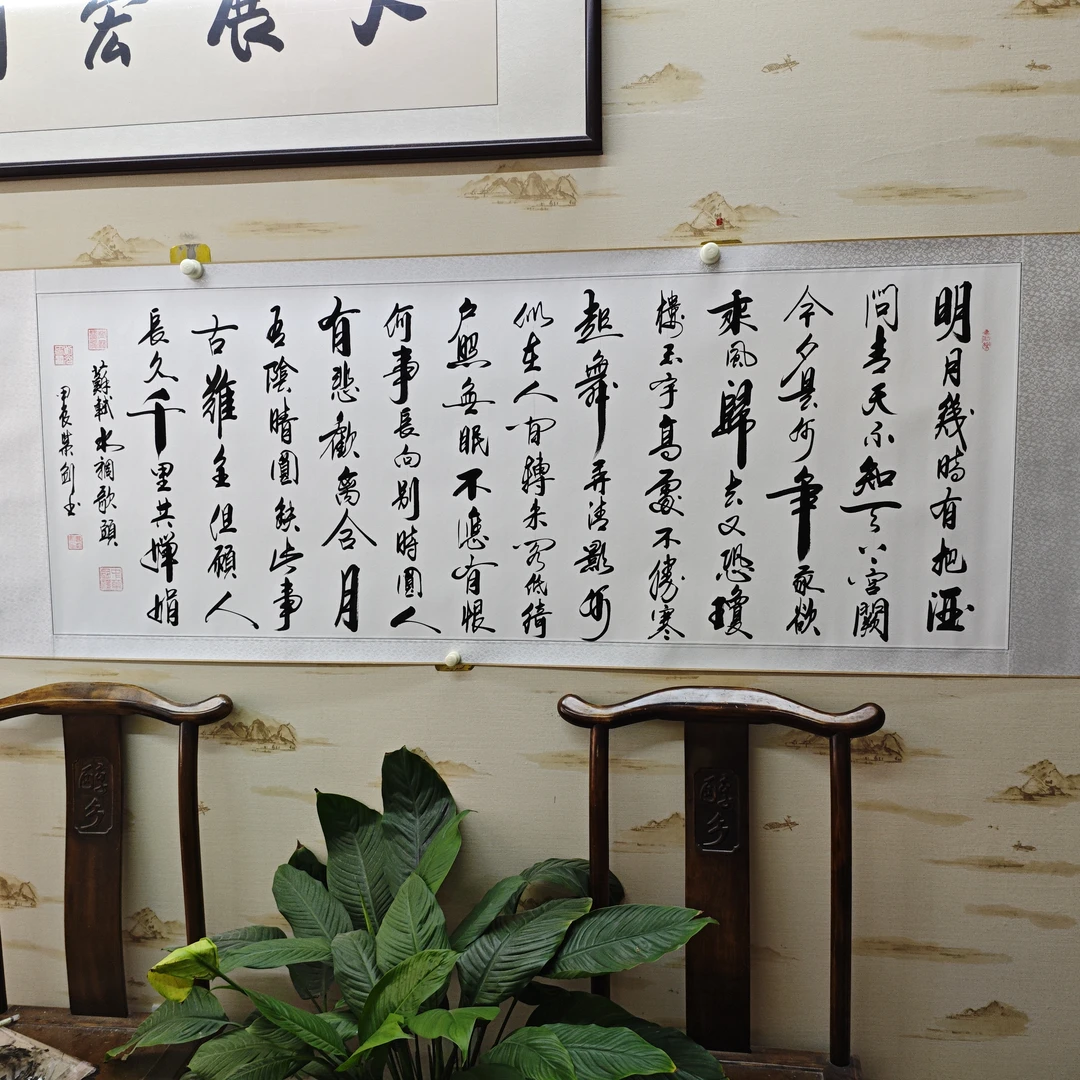 大展宏
明月幾時有把酒
問青天不知天上宮闕
今夕是何年我欲
乘風歸去又恐瓊
樓玉宇高處不勝寒
起舞弄清影何
似在人間轉朱閣低綺
户照無眠不應有恨
何事長向别時圓人
有悲歡离合月
有陰晴圓缺此事
古難全但願人
長久千里共嬋娟
蘇軾水調歌頭
甲辰